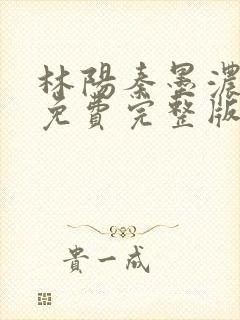 林陽秦墨濃
免費完整版
貴一成